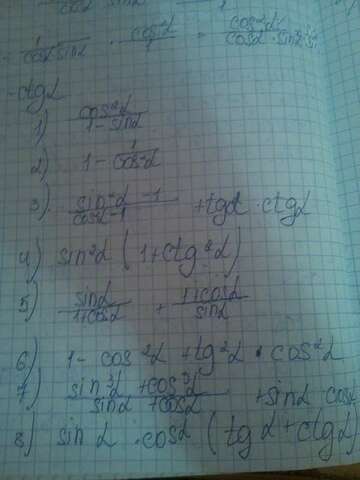 1/cos²α sinα · cos²α = cos²α/cosα · sin²α
-ctgα
1) cos²α/1 - sinα
2) 1 - 1/cos²α
3) sin²α - 1/cos²α - 1 + tgα · ctgα
4) sin²α (1 + ctg²α)
5) sinα/1+cosα + 1+cosα/sinα
6) 1 - cos²α + tg²α · cos²α
7) sin³α + cos³α/sinα + cosα + sinα cosα
8) sinα · cosα (tgα + ctgα)